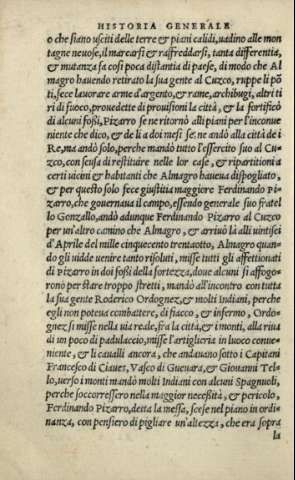 HISTORIA GENERALE
o che siano usciti delle terre & piani calidi, uadino alle mon
tagne neuose, il marearsi & raffreddarsi, tanta differentia,
& mutanza fa cosi poca distantia di paese, di modo che Al
magro hauendo retirato la sua gente al Cuzco, ruppe li pō
ti, fece lauorare arme d'argento, & rame, archibugi, altri ti
ri di fuoco, prouedette di prouisioni la città, & la fortificò
di alcuni fossi, Pizarro se ne ritornò alli piani per l'inconue
niente che dico, & de li a doi mesi se ne andò alla città de i
Re, ma andò solo, perche mandò tutto l'essercito suo al Cu-
zco, con scusa di restituire nelle lor case, & ripartitioni a
certi uicini & habitanti che Almagro haueua dispogliato,
& per questo solo fece giustitia maggiore Ferdinando Pi-
zarro, che gouernaua il campo, essendo generale suo fratel
lo Gonzallo, andò adunque Ferdinando Pizarro al Cuzco
per un'altro camino che Almagro, & arriuò là alli uintisei
d'Aprile del mille cinquecento trentaotto, Almagro quan-
do gli uidde uenire tanto risoluti, misse tutti gli affettionati
di Pizarro in doi fossi della fortezza, doue alcuni si affogo-
rono per stare troppo stretti, mandò all'incontro con tutta
la sua gente Roderico Ordognez, & molti Indiani, perche
egli non poteua combattere, di fiacco, & infermo, Ordo-
gnez si misse nella uia reale, fra la città, & i monti, alla riua
di un poco di padulaccio, misse l'artiglieria in luoco conue-
niente, & li caualli ancora, che andauano sotto i Capitani
Francesco di Ciaues, Vasco di Gueuara, & Giouanni Tel-
lo, uerso i monti mandò molti Indiani con alcuni Spagnuoli,
perche soccorressero nella maggior necessità, & pericolo,
Ferdinando Pizarro, detta la messa, scese nel piano in ordi-
nanza, con pensiero di pigliare un'altezza, che era sopra
la